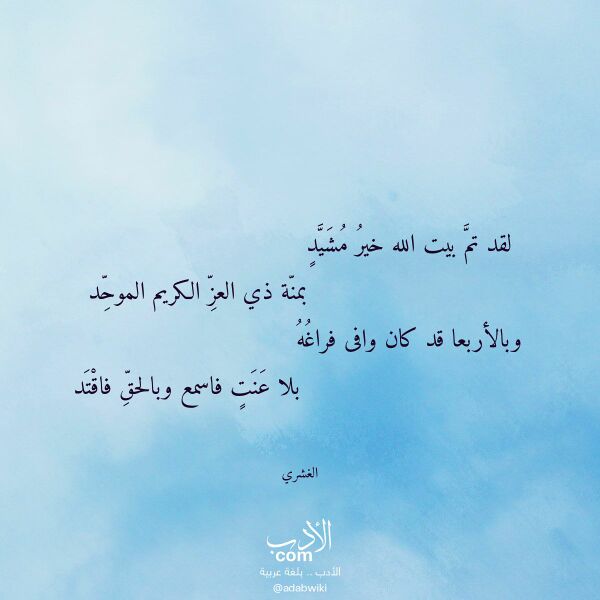 لقد تمَّ بيت الله خيرُ مُشَيَّدٍ
بمنّة ذي العزِّ الكريم الموحِّد
وبالأربعا قد كان وافى فراغُهُ
بلا عَنَتٍ فاسمع وبالحقِّ فاقْتَد
الغشري
الأدب
com
الأدب .. بلغة عربية
@adabwiki